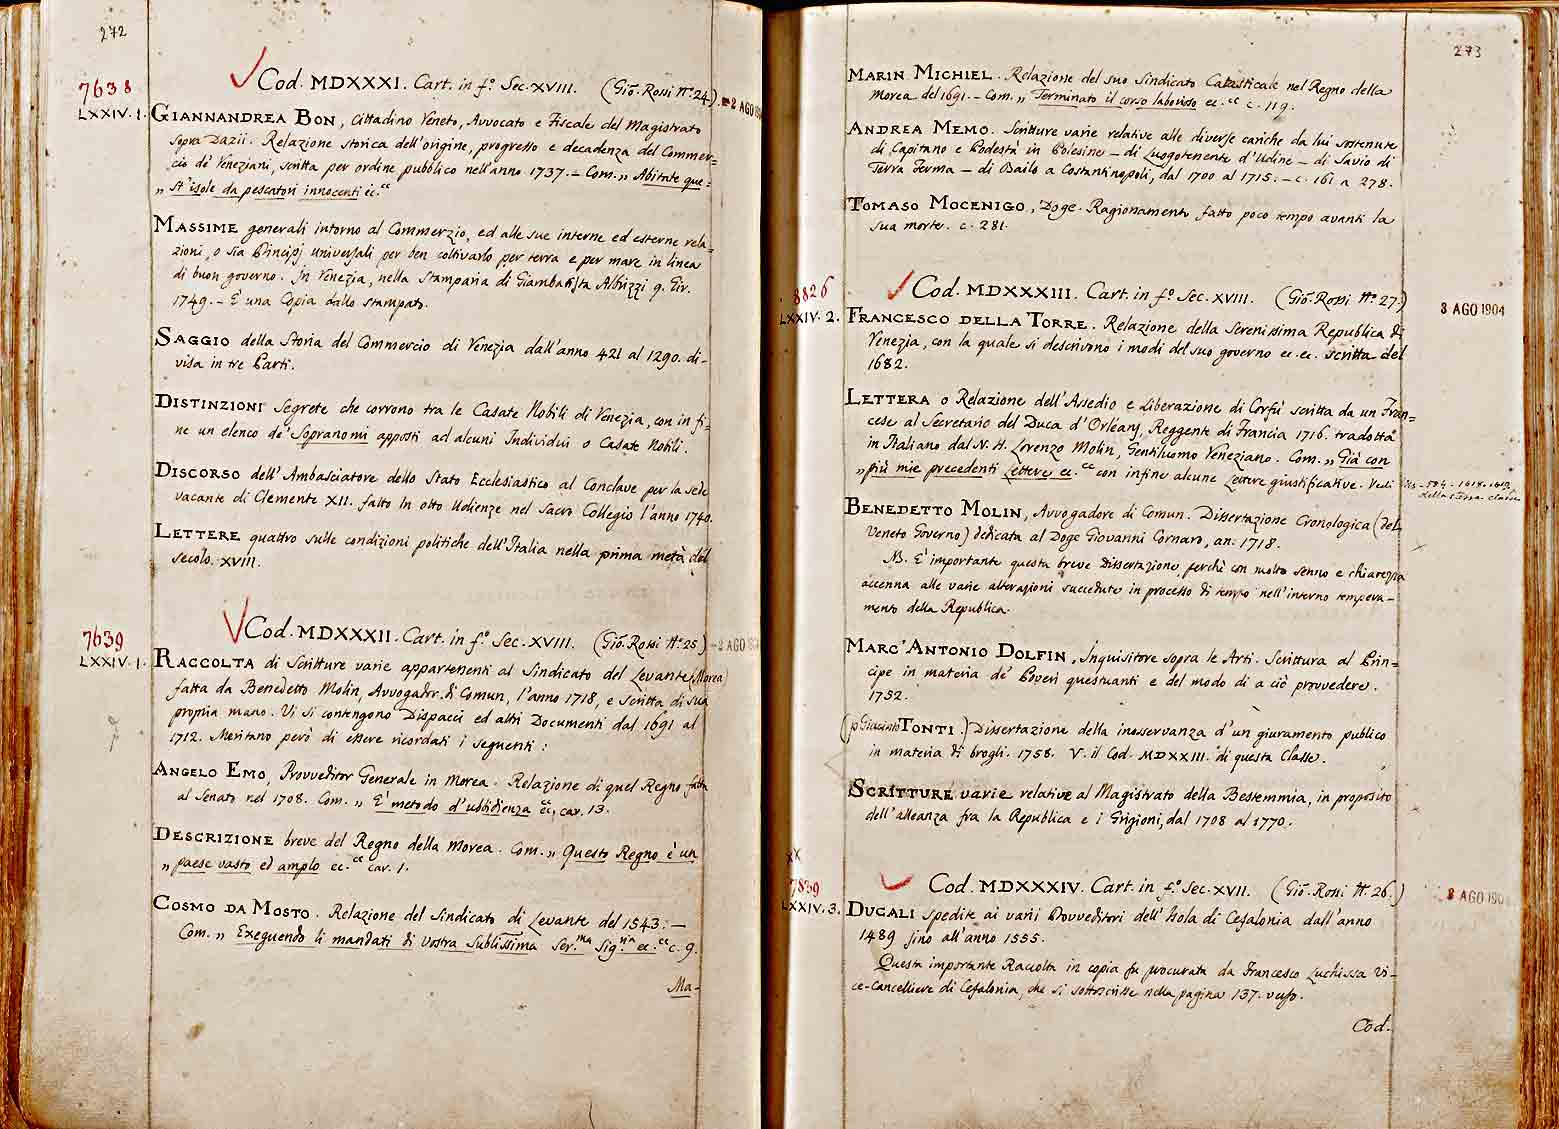 272
7638
Cod. MDXXXI. Cart. in fº. Sec. XVIII. (Gio. Rossi nº. 24.)
2 AGO
LXXIV. 1.
GIANNANDREA BON, Cittadino Veneto, Avvocato e Fiscale del Magistrato
sopra Dazii. Relazione storica dell'origine, progresso e decadenza del Commer=
cio de' Veneziani, scritta per ordine pubblico nell'anno 1737. – Com. „ Abitate que=
„ st'isole da pescatori innocenti ec.
MASSIME generali intorno al Commerzio, ed alle sue interne ed esterne rela=
zioni, o sia Principj universali per ben coltivarlo per terra e per mare in linea
di buon governo. In Venezia, nella Stamparia di Giambatista Albrizzi q. Gir.
1749. – È una Copia dallo stampato.
SAGGIO della Storia del Commercio di Venezia dall'anno 421 al 1290. di-
visa in tre Parti.
DISTINZIONI Segrete che corrono tra le Casate Nobili di Venezia, con in fi=
ne un elenco de' Sopranomi apposti ad alcuni Individui o Casate Nobili.
DISCORSO dell'Ambasciatore dello Stato Ecclesiastico al Conclave per la sede
vacante di Clemente XII. fatto In otto Udienze nel Sacro Collegio l'anno 1740.
LETTERE quattro sulle condizioni politiche dell'Italia nella prima metà del
secolo. XVIII.
7639
Cod. MDXXXII. Cart. in fº. Sec. XVIII. (Gio. Rossi Nº. 25)
2 AGO
LXXIV. 1.
RACCOLTA di Scritture varie appartenenti al Sindicato del Levante (Morea)
fatta da Benedetto Molin, Avvogador. di Comun, l'anno 1718, e scritta di sua
propria mano. Vi si contengono Dispacci ed altri Documenti dal 1691 al
1712. Meritano però di essere ricordati i seguenti:
ANGELO EMO, Provveditor Generale in Morea. Relazione di quel Regno fatta
al Senato nel 1708. Com. „ È metodo d'ubbidienza ec, car. 13.
DESCRIZIONE breve del Regno della Morea. Com. „ Questo Regno è un
„ paese vasto ed amplo ec. car. 1.
COSMO DA MOSTO. Relazione del Sindicato di Levante del 1543: –
Com. „ Exeguendo li mandati di Vostra Sublissima Ser.ma Sig.ria ec. c. 9.
Ma-
273
MARIN MICHIEL. Relazione del suo Sindicato Catasticale nel Regno della
Morea del 1691. – Com. „ Terminato il corso laborioso ec. c. 119.
ANDREA MEMO. Scritture varie relative alle diverse cariche da lui sostenute
di Capitano e Podestà in Polesine – di Luogotenente d'Udine – di Savio di
Terra Ferma – di Bailo a Costantinopoli, dal 1700 al 1715. – c. 161 a 278.
TOMASO MOCENIGO, Doge. Ragionamento fatto poco tempo avanti la
sua morte. c. 281.
8826
Cod. MDXXXIII. Cart. in fº. Sec. XVIII. (Gio. Rossi Nº. 27.)
3 AGO 1904
LXXIV. 2.
FRANCESCO DELLA TORRE. Relazione della Serenissima Republica di
Venezia, con la quale si descrivono i modi del suo governo ec. ec. scritta del
1682.
LETTERA o Relazione dell'Assedio e Liberazione di Corfù scritta da un Fran=
cese al Secretario del Duca d'Orleans, Reggente di Francia 1716. tradotta
in Italiano dal N. H. Lorenzo Molin, Gentiluomo Veneziano. Com. „ Già con
„ più mie precedenti Lettere ec. con infine alcune Lettere giustificative. Vedi
della stessa classe
BENEDETTO MOLIN, Avvogadore di Comun. Dissertazione Cronologica (del
Veneto Governo) dedicata al Doge Giovanni Cornaro, an: 1718.
NB. È importante questa breve dissertazione perchè con molto senno e chiarezza
accenna alle varie alterazioni succedute in processo di tempo nell'interno tempera-
mento della Republica.
MARC'ANTONIO DOLFIN, Inquisitore sopra le Arti. Scrittura al Prin=
cipe in materia de' Poveri questuanti e del modo di a ciò provvedere.
1752.
(p Giacinto TONTI.) Dissertazione della inosservanza d'un giuramento publico
in materia di brogli. 1758. V. il Cod. MDXXIII. di questa Classe.
SCRITTURE varie relative al Magistrato della Bestemmia, in proposito
dell'alleanza fra la Republica e i Grigioni, dal 1708 al 1770.
XX
7839
Cod. MDXXXIV. Cart. in fº. Sec. XVII. (Gio. Rossi Nº. 26.)
3 AGO 190
LXXIV. 3.
DUCALI spedite ai varii Provveditori dell'Isola di Cefalonia dall'anno
1489 fino all'anno 1555.
Questa importante Raccolta in copia fu procurata da Francesco Luchissa Vi-
ce-Cancelliere di Cefalonia, che si sottoscrisse nella pagina 137. verso.
Cod.